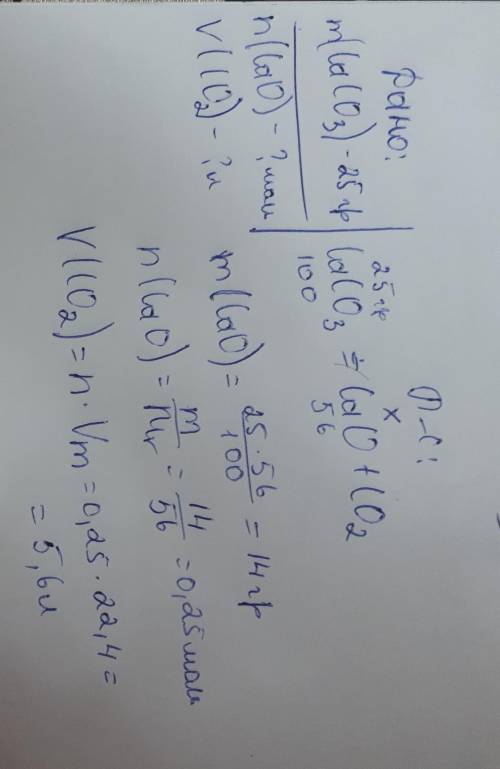 Дано:
m(CaCO₃) - 25 гр
n(CaO) - ? моль
V(CO₂) - ? л
Р-С:
25 гр x
CaCO₃ = CaO + CO₂
100 56
m(CaO) = 25 · 56 / 100 = 14 гр
n(CaO) = m / Mr = 14 / 56 = 0,25 моль
V(CO₂) = n · Vm = 0,25 · 22,4 =
= 5,6 л